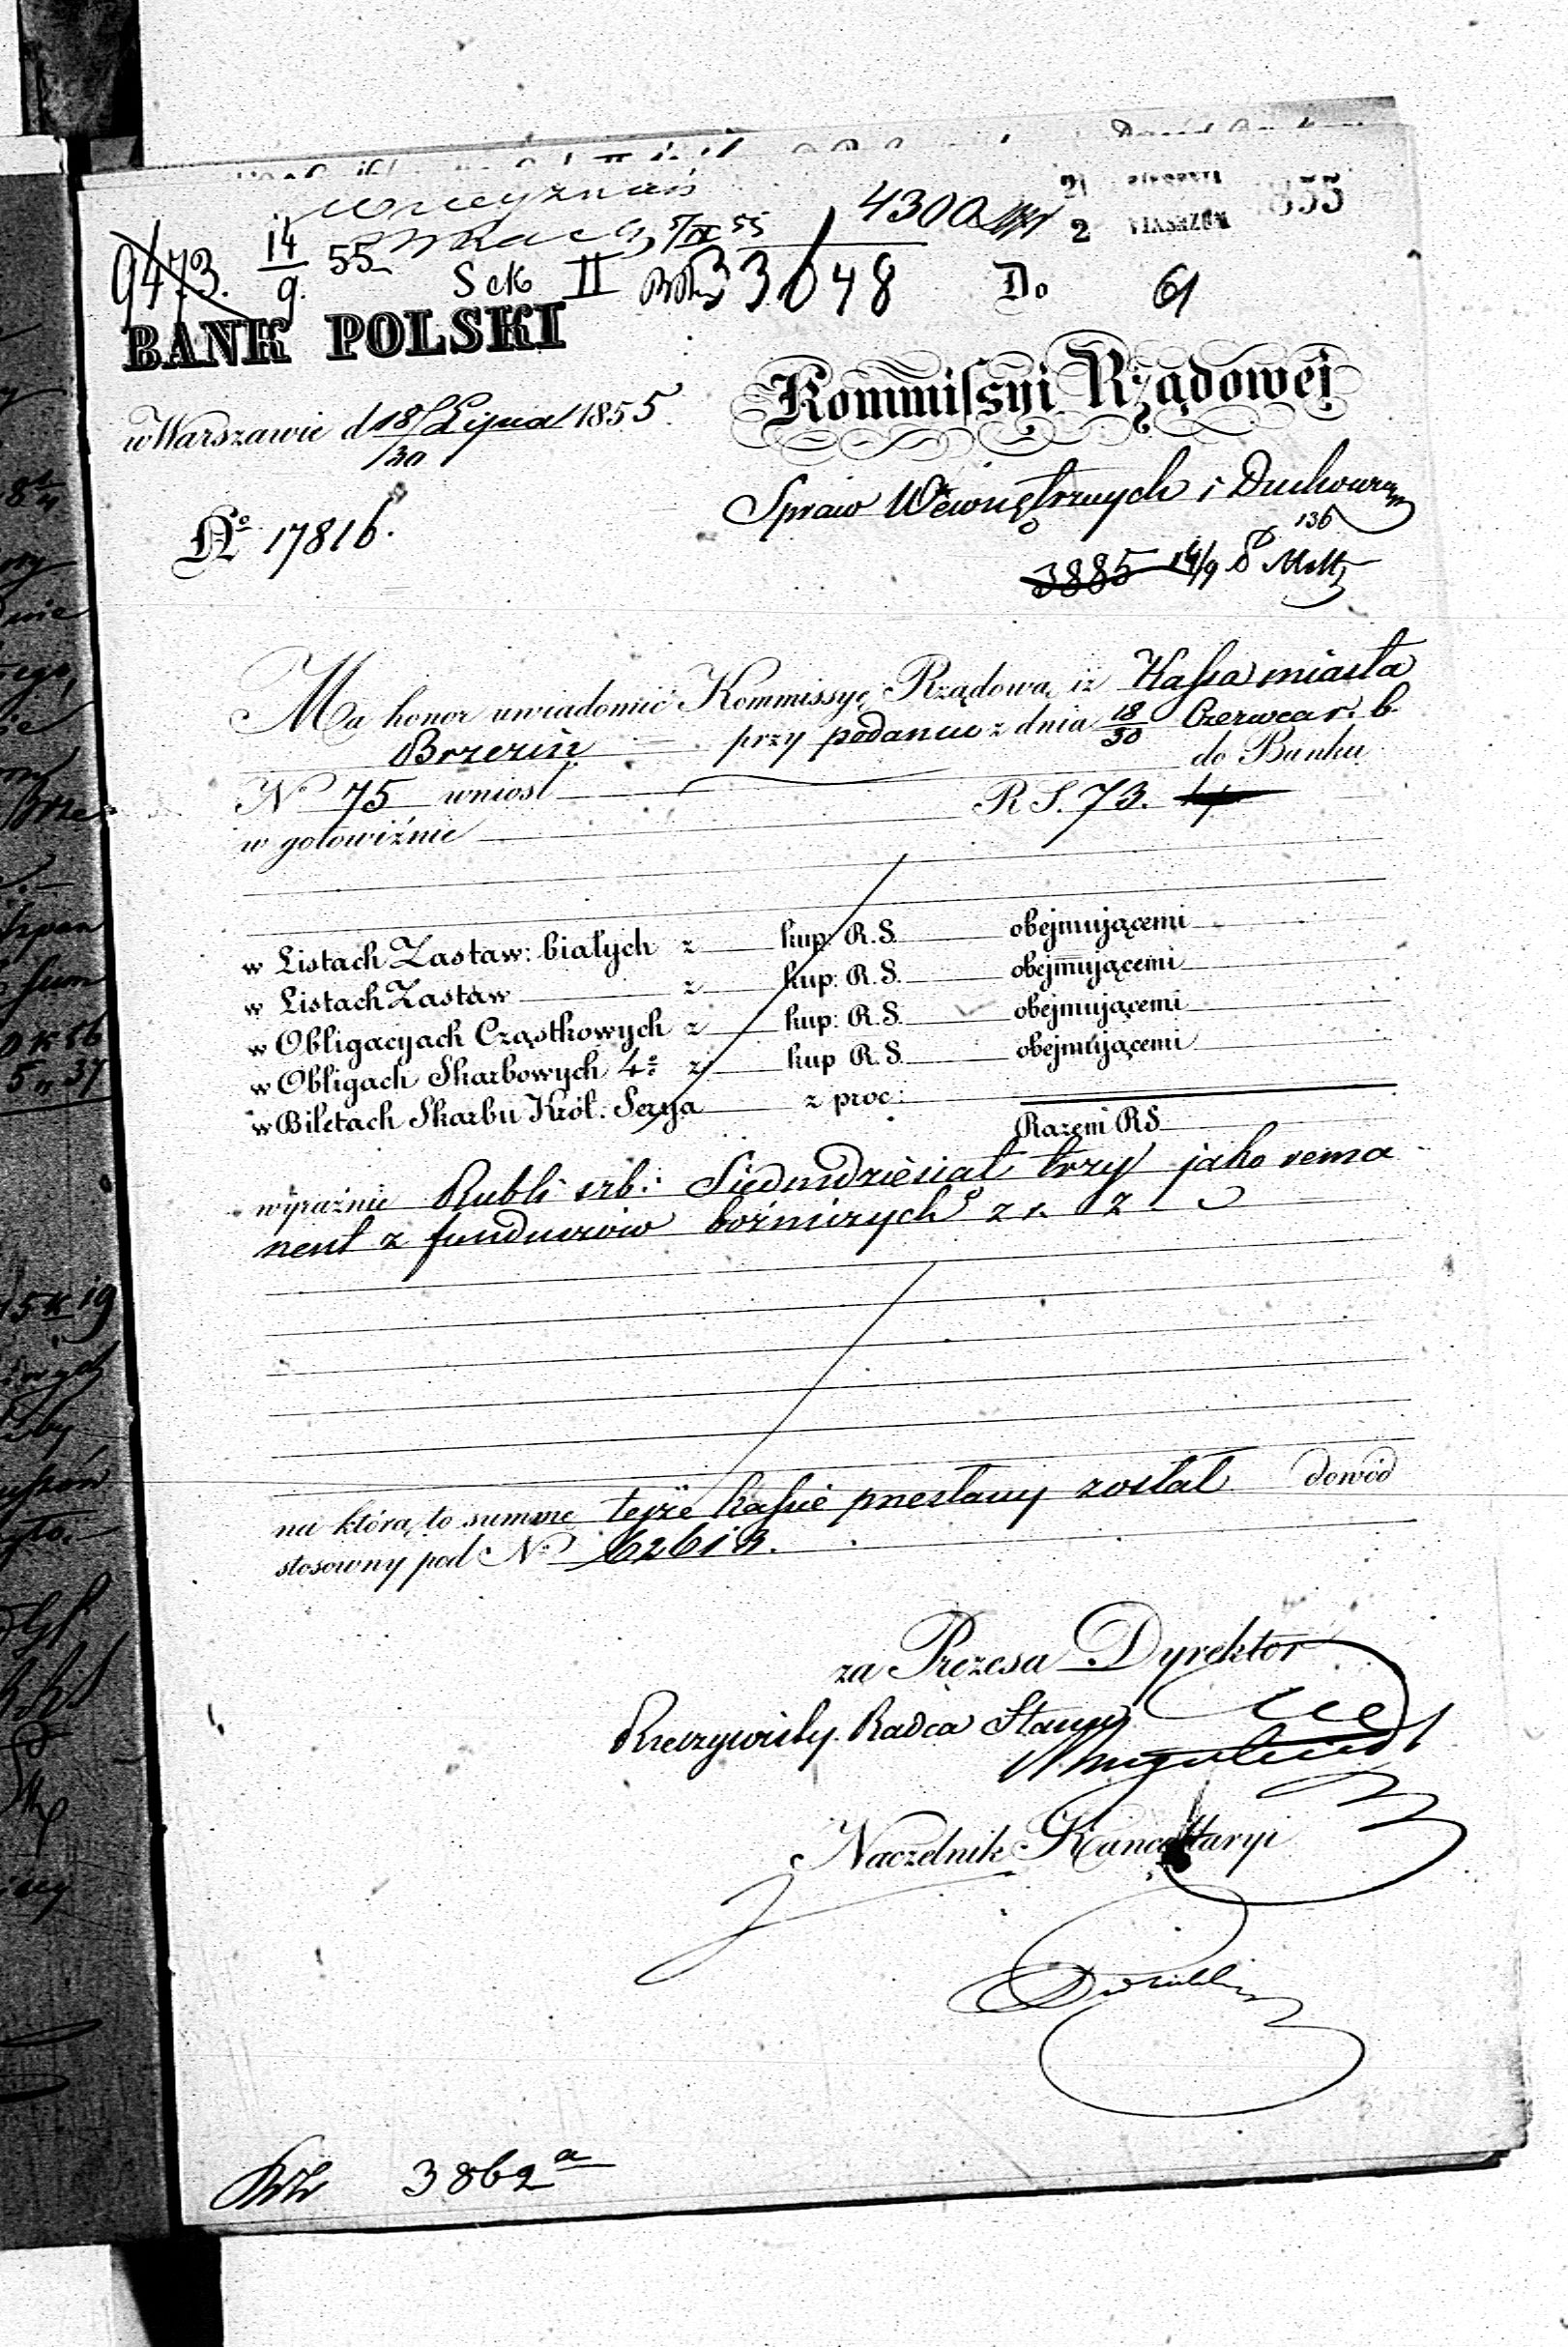 4300
855
9473. 14/9 55
5/IX 55
Sek II 33048 Do 61
BANK POLSKI
Kommissyi Rządowej
w Warszawie d 18/30 Lipca 1855.
Spraw Wewnętrznych i Duchownych
136
No 17816.
3885 14/9
Ma honor uwiadomić Kommissyę Rządową iż Kassa miasta
Brzezin przy podaniu z dnia 18/30 Czerwca r. b.
No 75 wniosł do Banku
w gotowiźnie R S. 73.
w Listach Zastaw: białych z kup: R. S. obejmującemi
w Listach Zastaw z kup: R. S. obejmującemi
w Obligacyach Cząstkowych z kup: R. S. obejmującemi
w Obligach Skarbowych 4: z kup R. S. obejmującemi
w Biletach Skarbu Król. Serya z proc:
Razem RS
wyraźnie Rubli srb: Siedmdziesiąt trzy jako rema
nent z funduszów bóżniczych z r.
na którą to summę tejże kassie przesłany został dowód
stosowny pod No 62613.
za Prezesa Dyrektor
Rzeczywisty Radca Stanu
Naczelnik Kancellaryi
3862 a